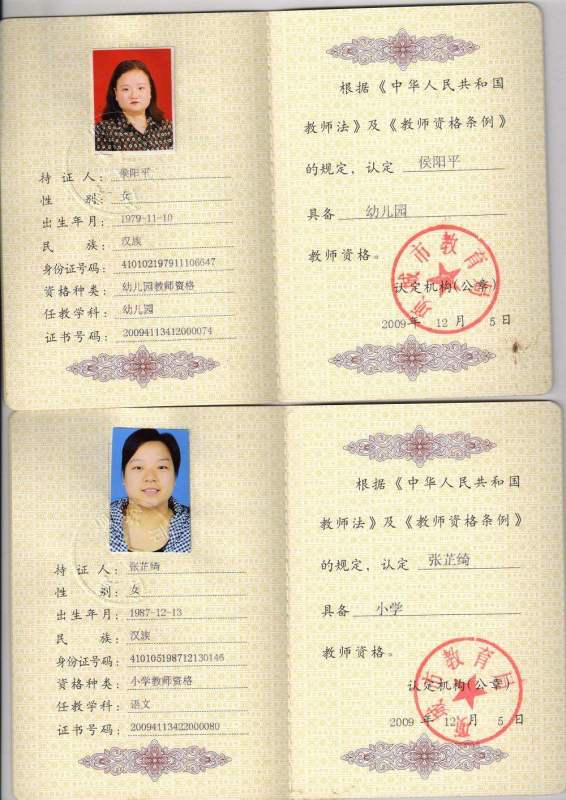 持证人：侯阳平
性别：女
出生年月：1979-11-10
民族：汉族
身份证号码：410102197911106647
资格种类：幼儿园教师资格
任教学科：幼儿园
证书号码：20094113412000074
根据《中华人民共和国
教师法》及《教师资格条例》
的规定，认定 侯阳平
具备 幼儿园
教师资格。
项城市教育局
认定机构(公章)
2009年 12月 5日
持证人：张芷绮
性别：女
出生年月：1987-12-13
民族：汉族
身份证号码：410105198712130146
资格种类：小学教师资格
任教学科：语文
证书号码：20094113422000080
根据《中华人民共和国
教师法》及《教师资格条例》
的规定，认定 张芷绮
具备 小学
教师资格。
项城市教育局
认定机构(公章)
2009年 12月 5日